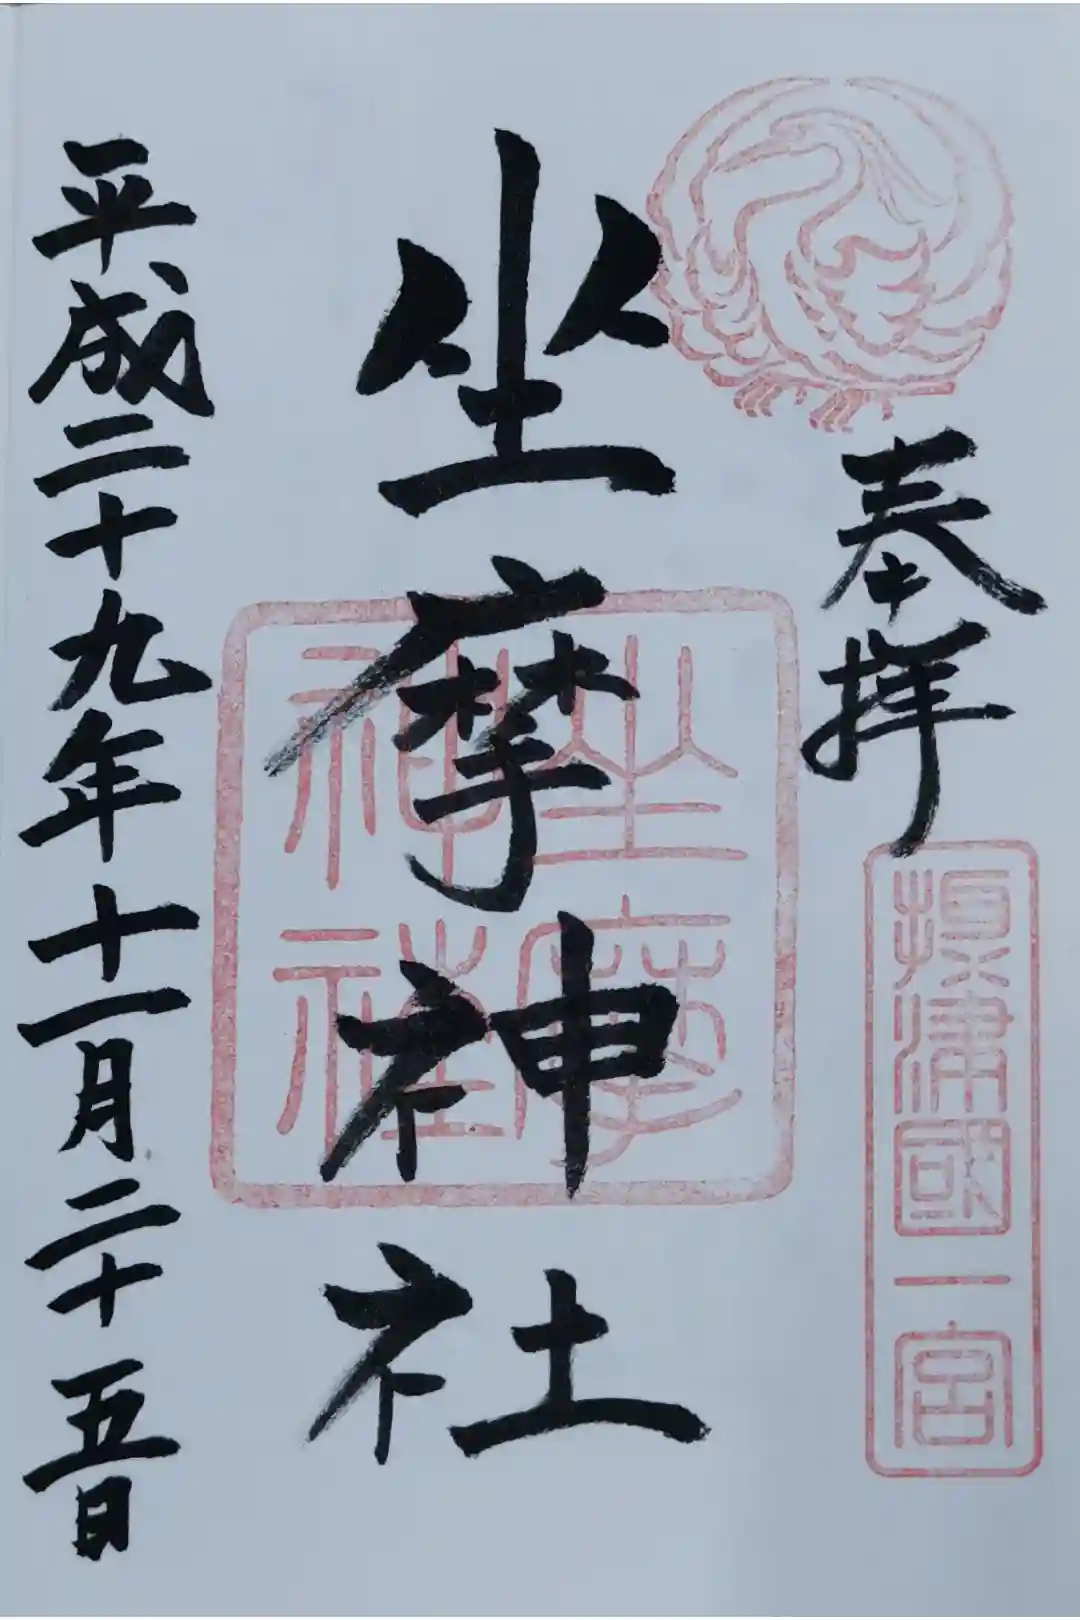 奉拝
摂津國一宮
坐摩神社
坐摩
神社
平成二十九年十一月二十五日